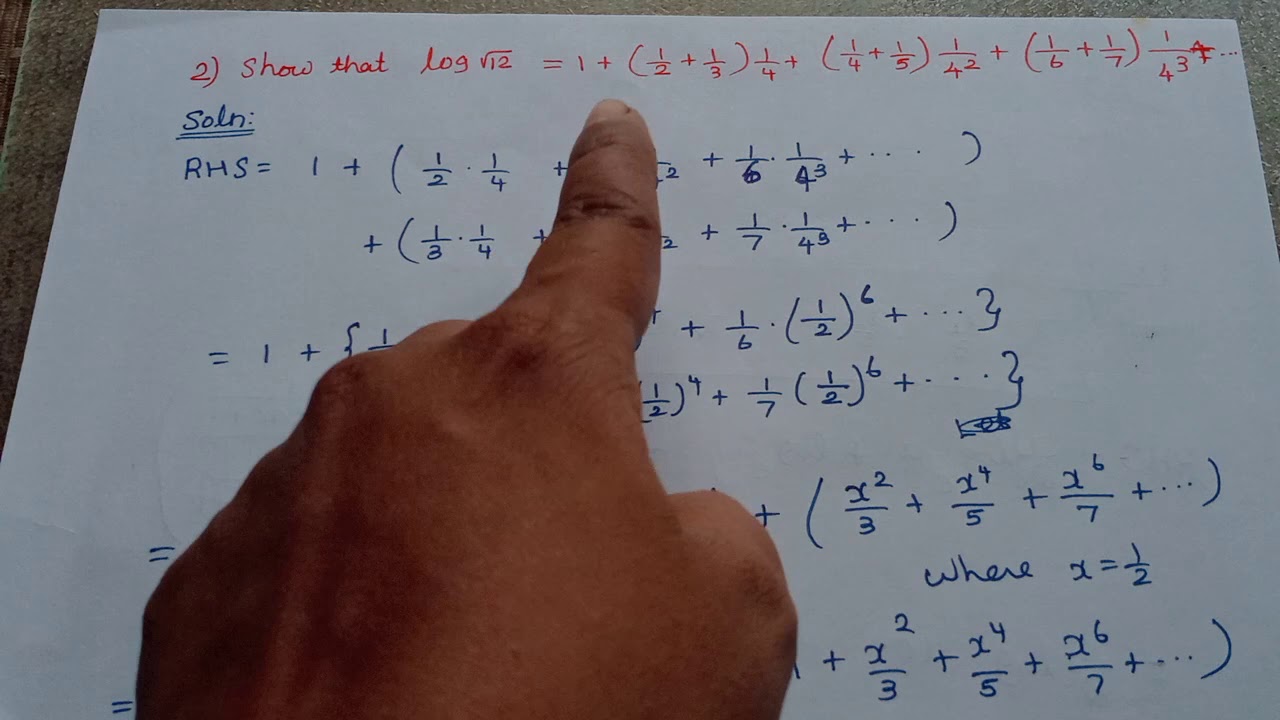 2) Show that log √12 = 1 + (1/2 + 1/3) 1/4 + (1/4 + 1/5) 1/4² + (1/6 + 1/7) 1/4³ + ...
Soln:
RHS = 1 + ( 1/2 · 1/4 + ² + 1/6 · 1/4³ + .... )
+ ( 1/3 · 1/4 + ² + 1/7 · 1/4³ + .... )
= 1 + { 1/ + 1/6 · (1/2)⁶ + .... }
(1/2)⁴ + 1/7 (1/2)⁶ + .... }
= + ( x²/3 + x⁴/5 + x⁶/7 + ... )
where x = 1/2
= + x²/3 + x⁴/5 + x⁶/7 + ... )